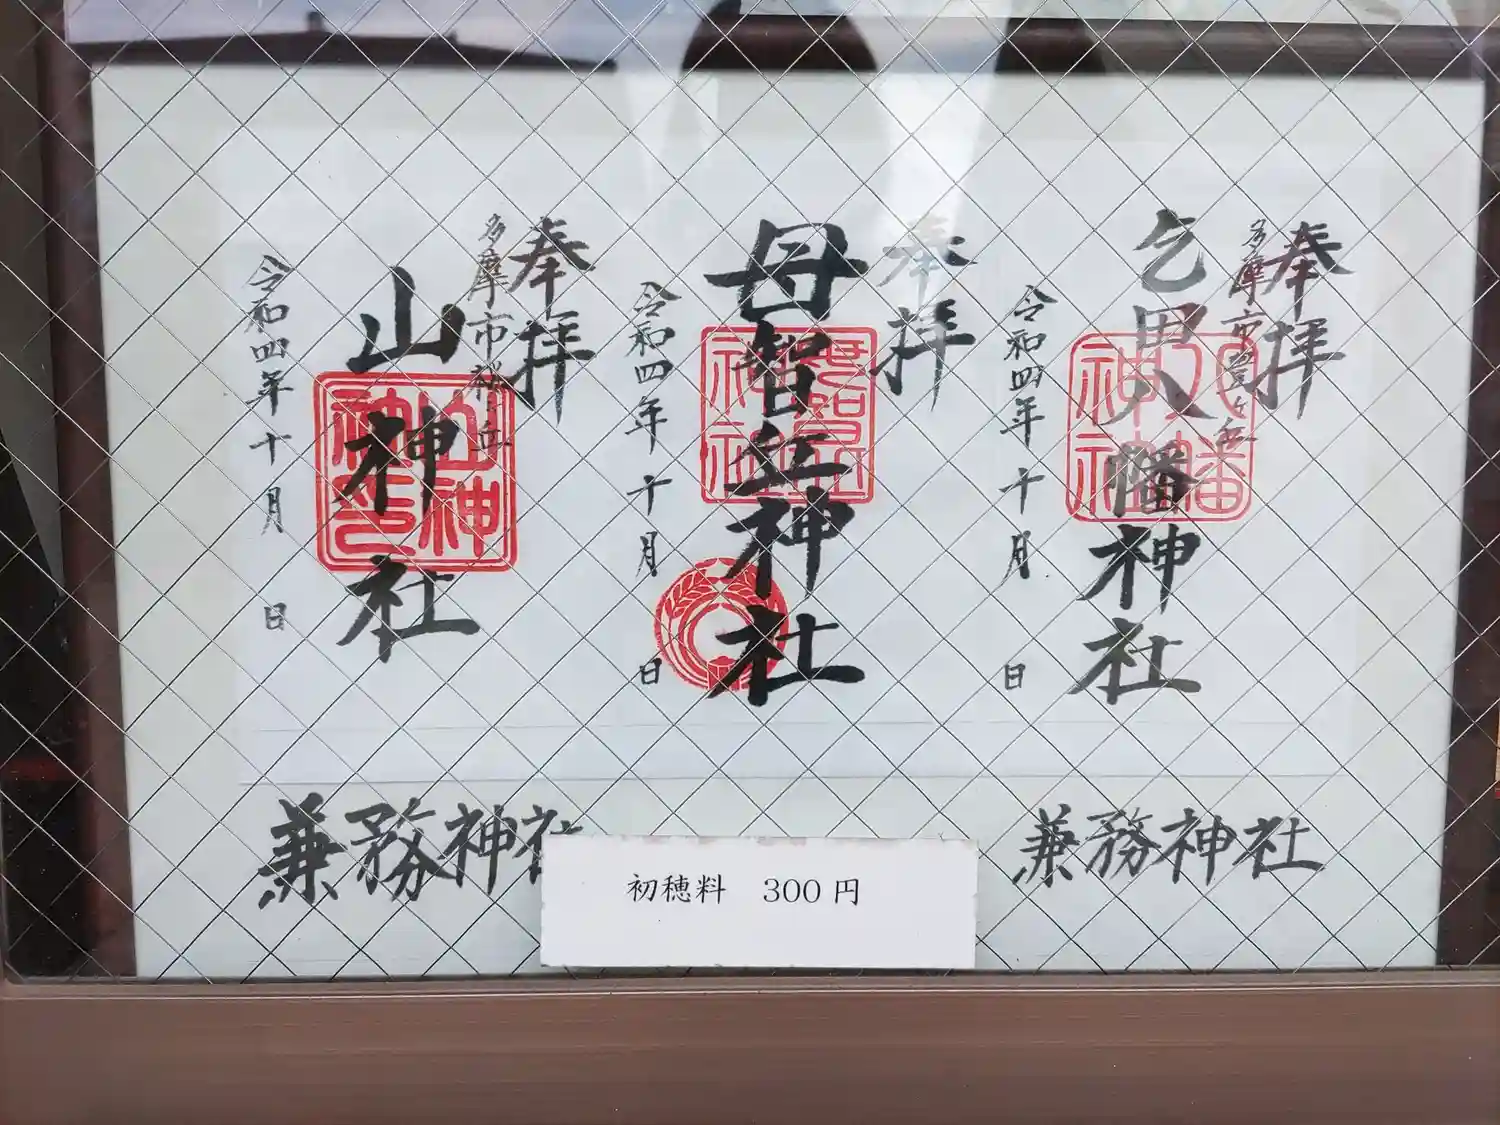 奉拝
多摩市豊ヶ丘
乞田八幡神社
八幡神社
令和四年十月 日
奉拝
母智丘神社
母智丘神社
令和四年十月 日
奉拝
多摩市桜ヶ丘
山神社
山神社之印
令和四年十月 日
兼務神社
兼務神社
初穂料 300円